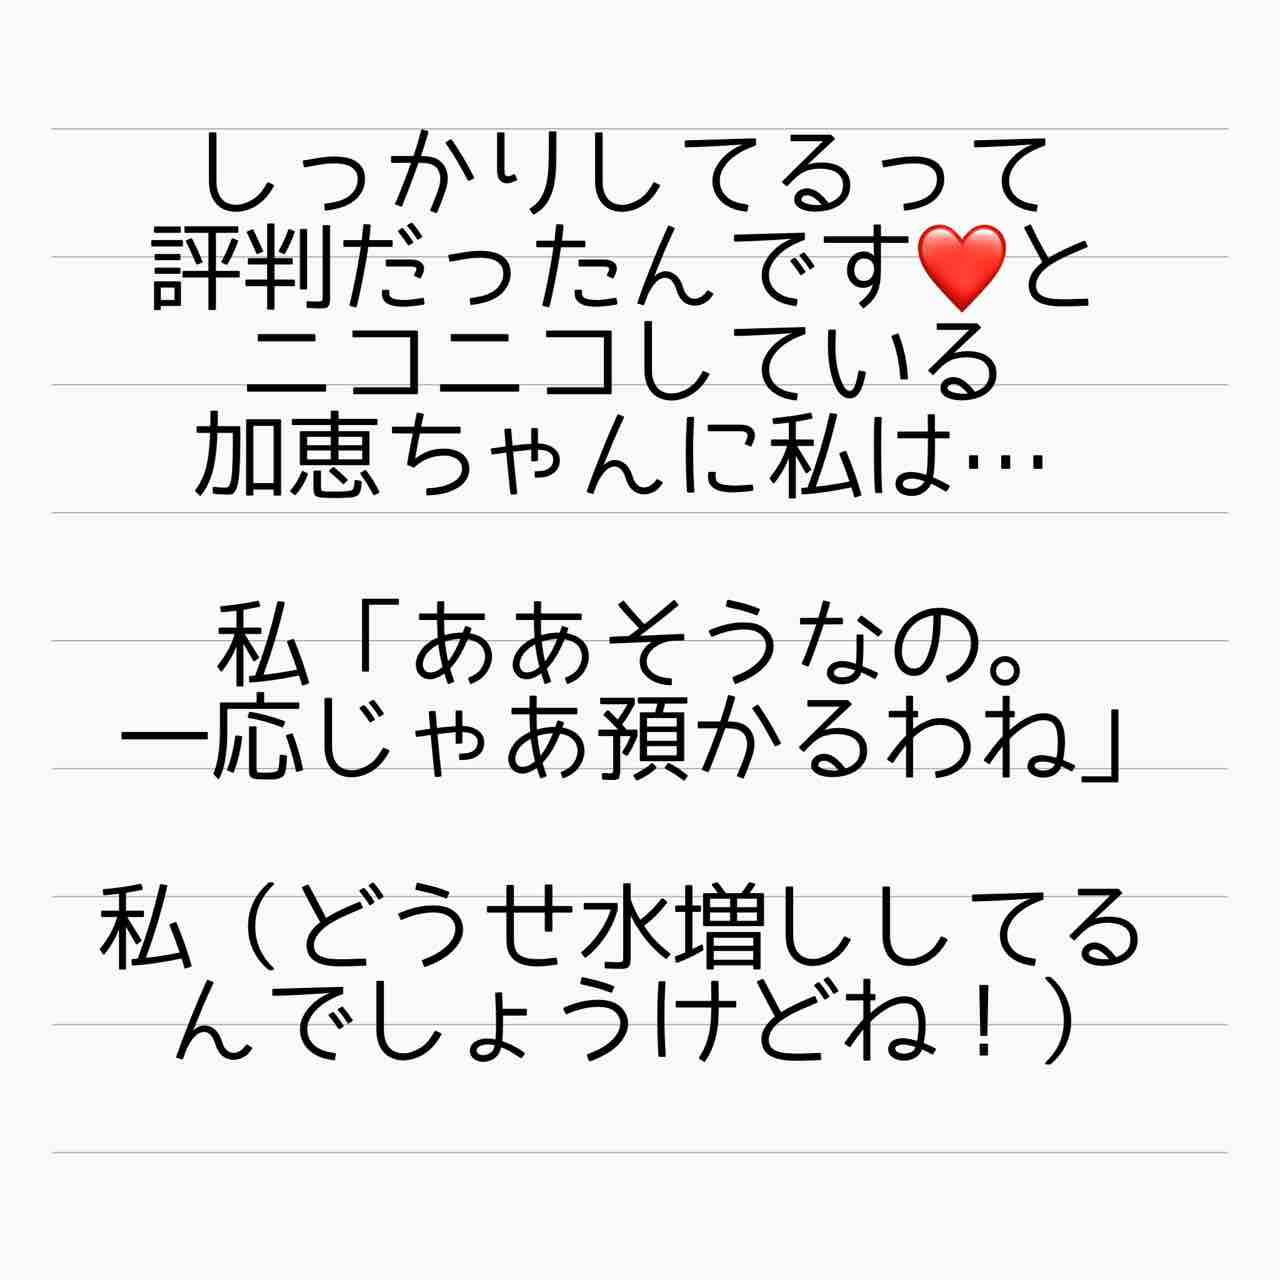 しっかりしてるって
評判だったんです❤️と
ニコニコしている
加恵ちゃんに私は…
私「ああそうなの。
一応じゃあ預かるわね」
私（どうせ水増ししてる
んでしょうけどね！）